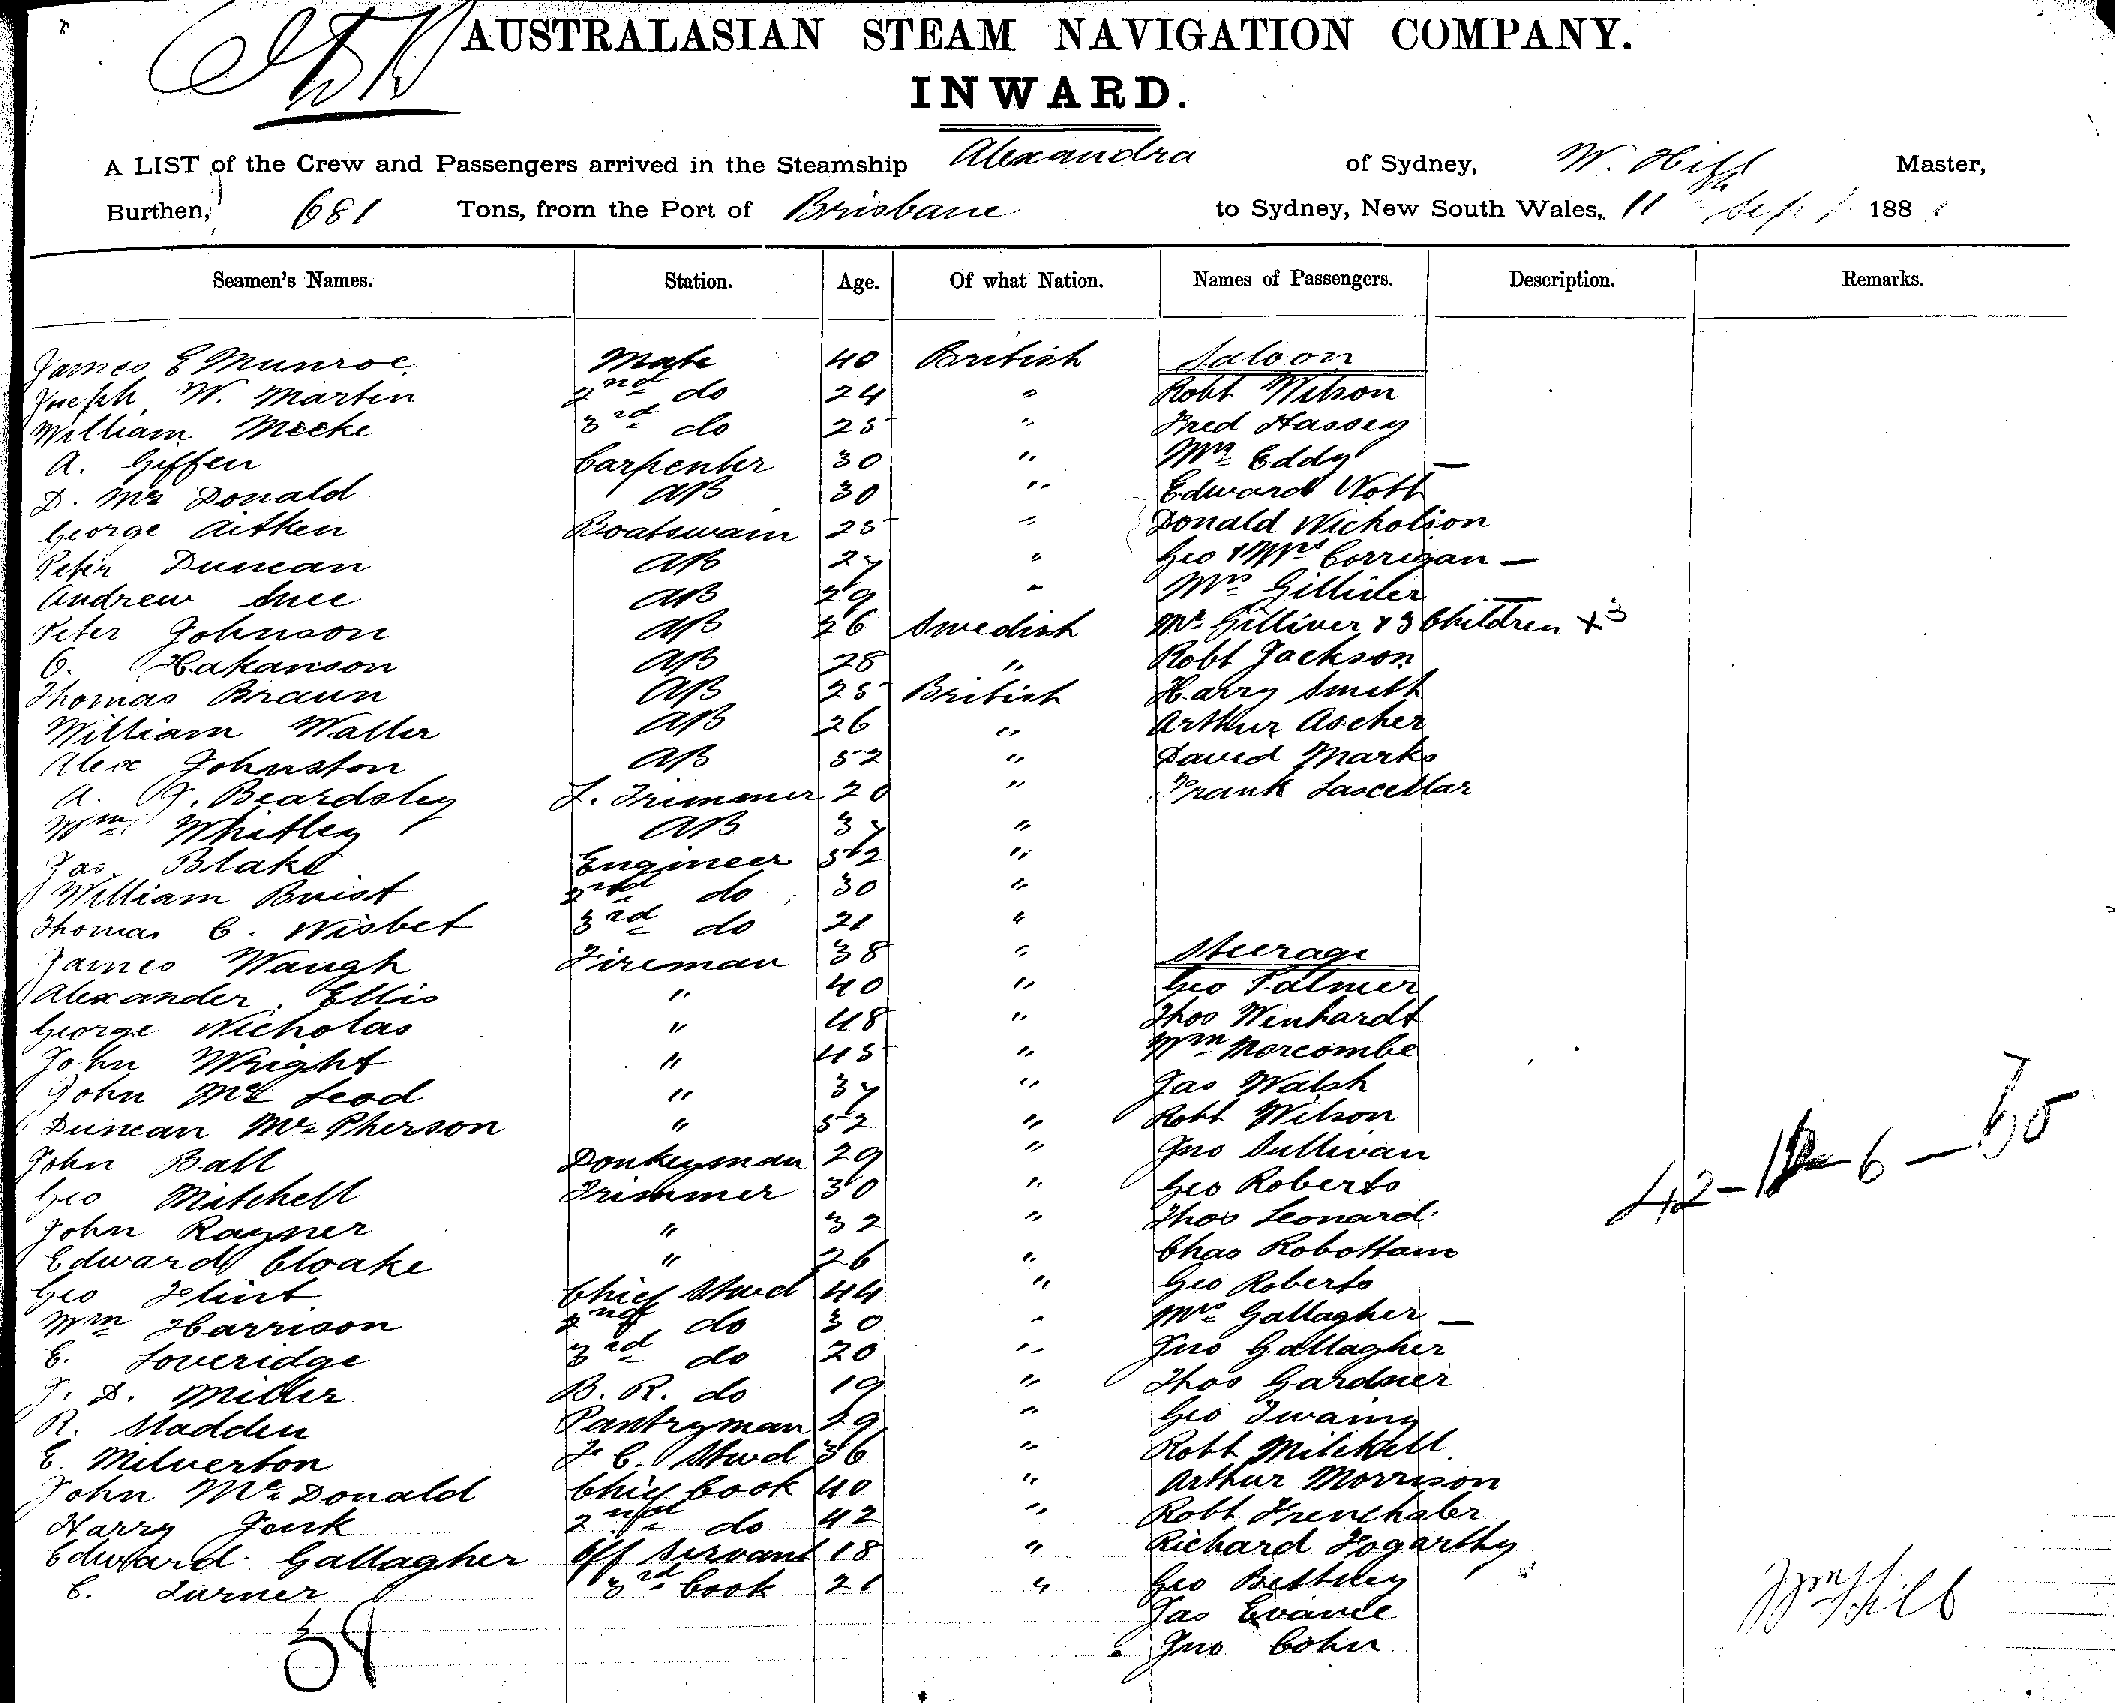 AUSTRALASIAN STEAM NAVIGATION COMPANY.
INWARD.
A LIST of the Crew and Passengers arrived in the Steamship Alexandra of Sydney, W. Hill Master,
Burthen, 681 Tons, from the Port of Brisbane to Sydney, New South Wales, 11th Sept 188
Seamen's Names. Station. Age. Of what Nation. Names of Passengers. Description. Remarks.
James E Munroe Mate 40 British Saloon
Joseph W. Martin 2nd do 24 " Robt Wilson
William Mecke 3rd do 25 " Fred Hassey
A. Giffen Carpenter 30 " Mrs Eddy —
D. Mc Donald AB 30 " Edward Nott
George Aitken Boatswain 25 " Donald Nicholson
Peter Duncan AB 27 " Geo & Mrs Corrigan —
Andrew Snee AB 29 " Mrs Gilliver —
Peter Johnson AB 26 Swedish Mr Gilliver & 3 Children x3
O. Hakanson AB 28 " Robt Jackson
Thomas Braun AB 25 British Harry Smith
William Waller AB 26 " Arthur Ascher
Alex Johnston AB 52 " David Marks
A. J. Beardsley L. Trimmer 20 " Frank Lascellar
Wm Whitley AB 37 "
Jas Blake Engineer 52 "
William Buist 2nd do 30 "
Thomas C. Nisbet 3rd do 21 "
James Waugh Fireman 38 " Steerage
Alexander Ellis " 40 " Geo Palmer
George Nicholas " 48 " Thos Winhardt
John Wright " 45 " Wm Morcombe
John Mc Leod " 37 " Jas Walsh
Duncan Mc Pherson " 52 " Robt Wilson
John Ball Donkeyman 29 " Jno Sullivan
Geo Mitchell Trimmer 30 " Geo Roberts
John Rayner " 32 " Thos Leonard
Edward Cloake " 26 " Chas Robottam
Geo Flint Chief Stwd 44 " Geo Roberts
Wm Harrison 2nd do 30 " Mrs Gallagher —
E. Loveridge 3rd do 20 " Jno Gallagher
J. D. Miller B. R. do 19 " Thos Gardner
R. Madden Pantryman 29 " Geo Twaing
E. Milverton F. C. Stwd 36 " Robt Mitchell
John Mc Donald Chief Cook 40 " Arthur Morrison
Harry Jenk 2nd do 42 " Robt Frenchaler
Edward Gallagher Off Servant 18 " Richard Fogarthy
C. Turner 3rd Cook 21 " Geo Bettney
Jas Evance
Jno Cohn
38
Wm Hill